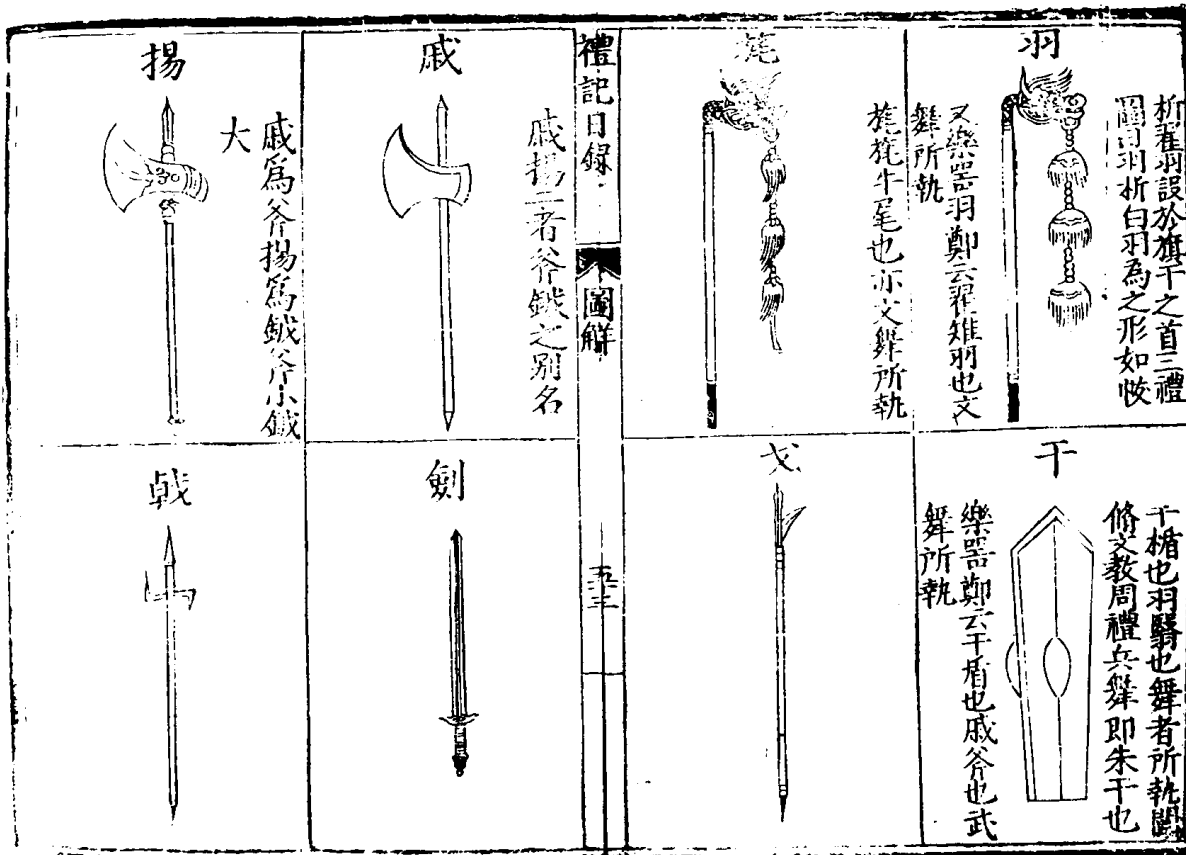 羽
析翟羽設於旗干之首三禮
圖曰羽析白羽為之形如帗
又樂器羽鄭云翟雉羽也文
舞所執
旄
旄旄牛尾也亦文舞所執
干
干楯也羽翳也舞者所執
脩文教周禮兵舞即朱干也
樂器鄭云干盾也戚斧也武
舞所執
戈
禮記日録
圖解
戚
戚揚二者斧鉞之别名
劍
揚
戚爲斧揚爲鉞斧小鉞
大
戟